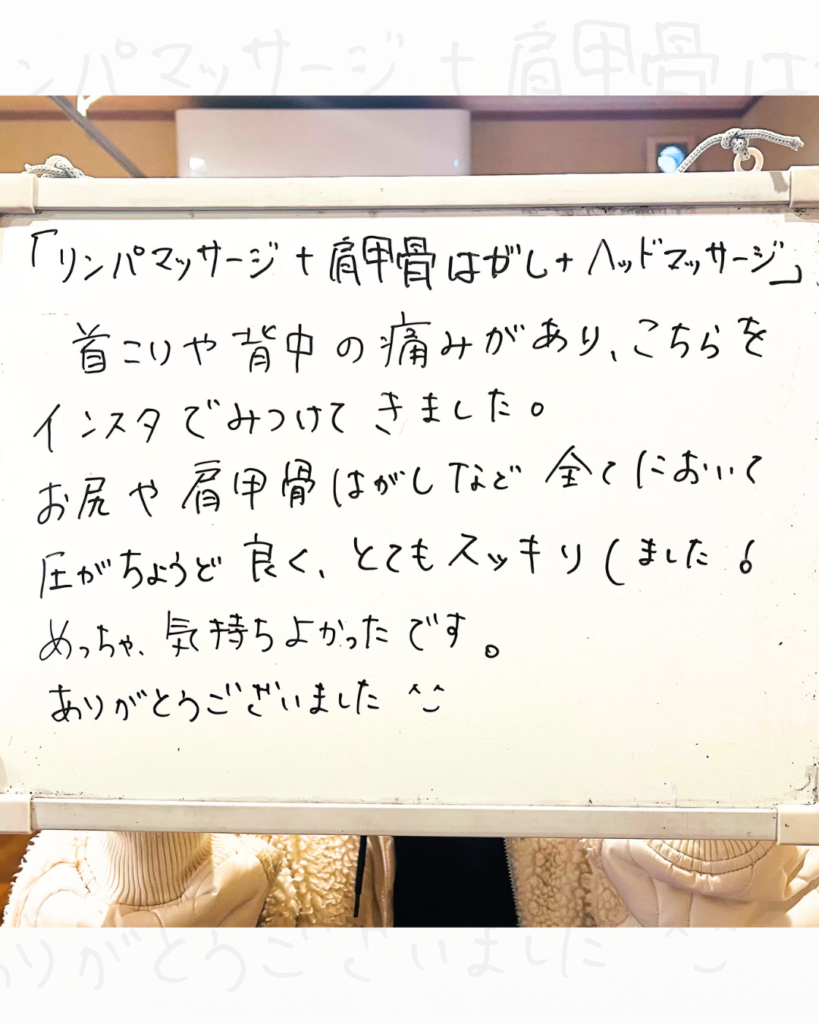 「リンパマッサージ+肩甲骨はがし+ヘッドマッサージ」
首こりや背中の痛みがあり、こちらを
インスタでみつけてきました。
お尻や肩甲骨はがしなど全てにおいて
圧がちょうど良く、とてもスッキリしました!
めっちゃ、気持ちよかったです。
ありがとうございました ^^